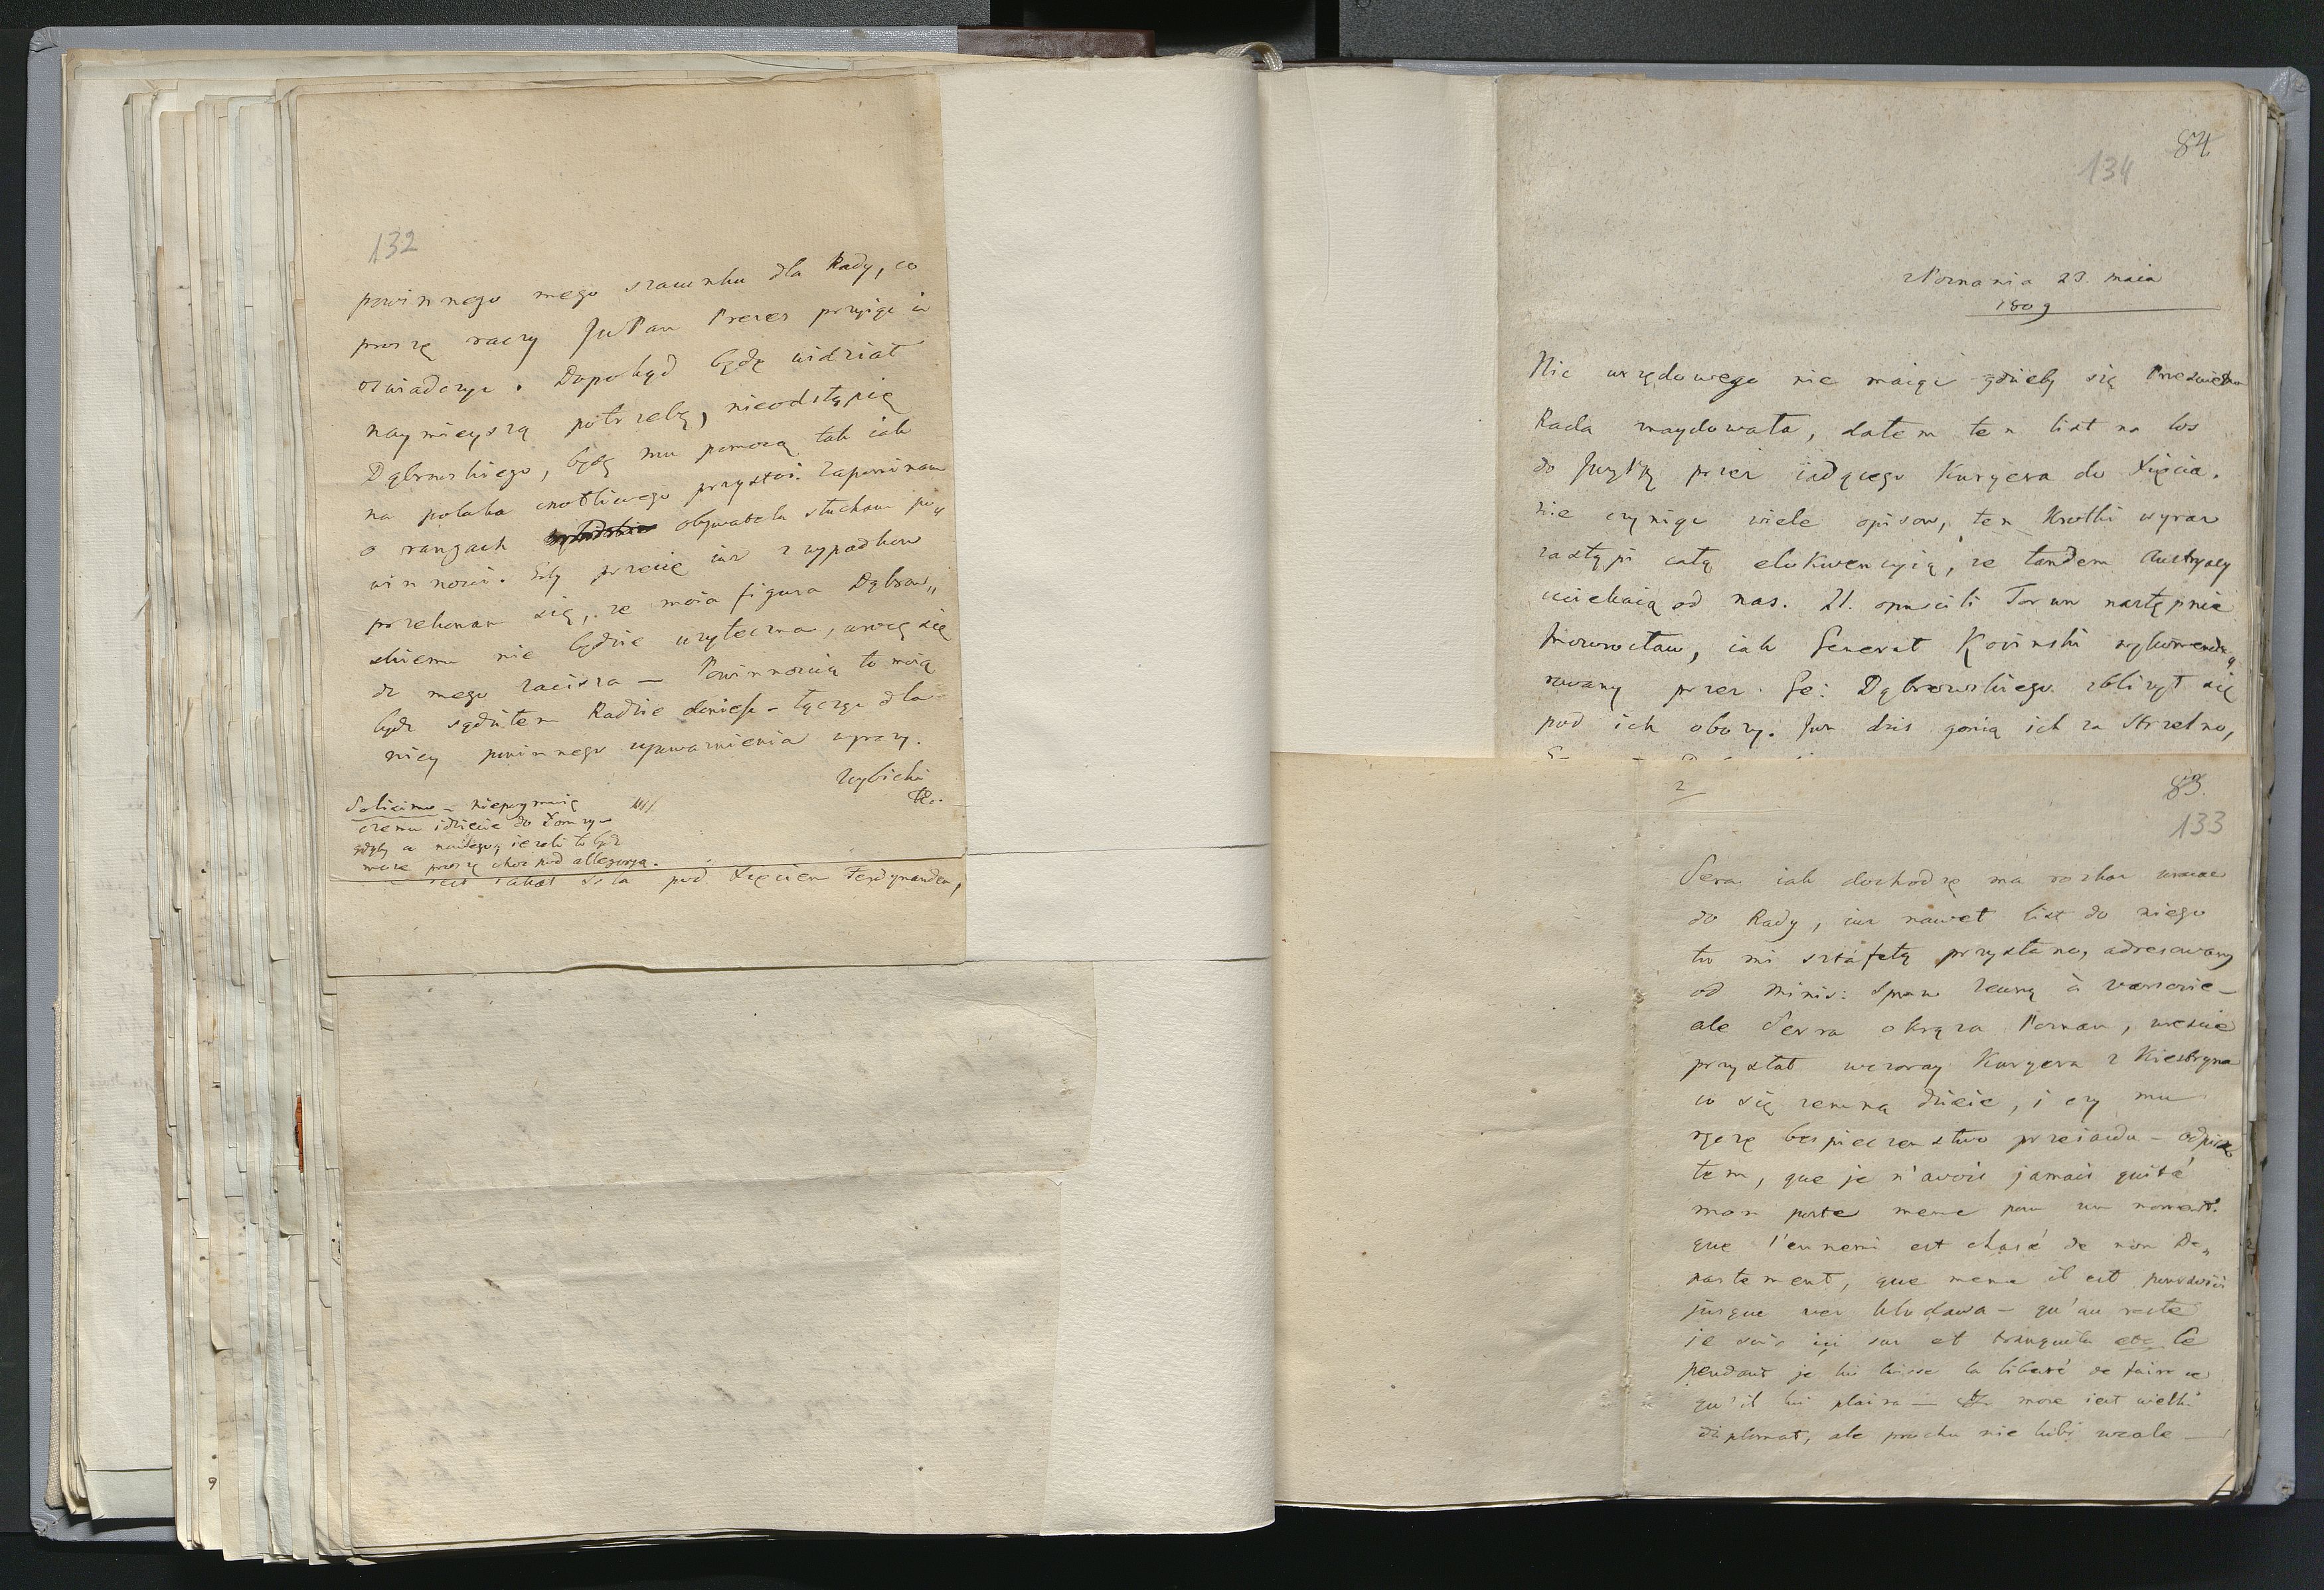 132
powinnego mego szacunku dla Rady, co
proszę raczy JwPan Prezes przyiąć i
oswiadczyć. Dopokąd będę widział
naymieyszą potrzebę, nieodstąpię
Dąbrowskiego, będę mu pomocą tak iak
na polaka cnotliwego przystoi. Zapominam
o rangach obywatela słucham po„
winnosci. Gdy przecię iuż z wypadkow
przekonam się, że moia figura Dąbrow„
skiemu nie będzie użyteczna, wrócę się
do mego zacisza — Powinnoscią to moią
bydz sądziłem Radzie doniesc - łącząc dla
niey powinnego uszanowania wyrazy.
Wybicki
niepoymuię
czemu idziecie do Łomży
gdyby a nadewszą ieżeli to bydź
może proszę choc pod allegoryą.
pod Xięciem Ferdynandem,
84
134
Poznania 23. maia
1809
Nic urzędowego nie maiąc gdzieby się Prześwietna
Rada znaydowała, dałem ten list na los
do przez iadącego Kuryera do Xięcia.
nie czyniąc wiele opisow, ten krotki wyraz
zastąpi całą elokwencyią, że tandem Austryacy
uciekaią od nas. 21. opuscili Torun następnie
Inowrocław, iak Generał Kosinski wykomende„
rowany przez Ge: Dąbrowskiego zbliżył się
pod ich obozy. Juz dzis gonią ich za Strzelno,
2
83.
133
Serra iak dochodzę ma rozkaz wracac
do Rady, iuz nawet list do niego
tu mi sztafetą przysłano, adresowany
od Minis: Spraw Zewną à varsovie —
ale Serra okrąża Poznan, wreście
przysłał wczoray Kuryera z Kiestryna
co się zemną dzieie, i czy mu
ręczę bespieczenstwo przeiazdu — odpisa
łem, que je n'avois jamais quité
mon poste meme pour un moment.
que l'ennemi est chassé de mon De„
partement, que meme il est poursuivi
jusque ver Klodawa — qu'au reste
je suis ici sur et tranquile Ce
pendant je lui laisse la liberté de faire ce
qu'il lui plaira — może iest wielki
diplomat, ale prochu nie lubi wcale —